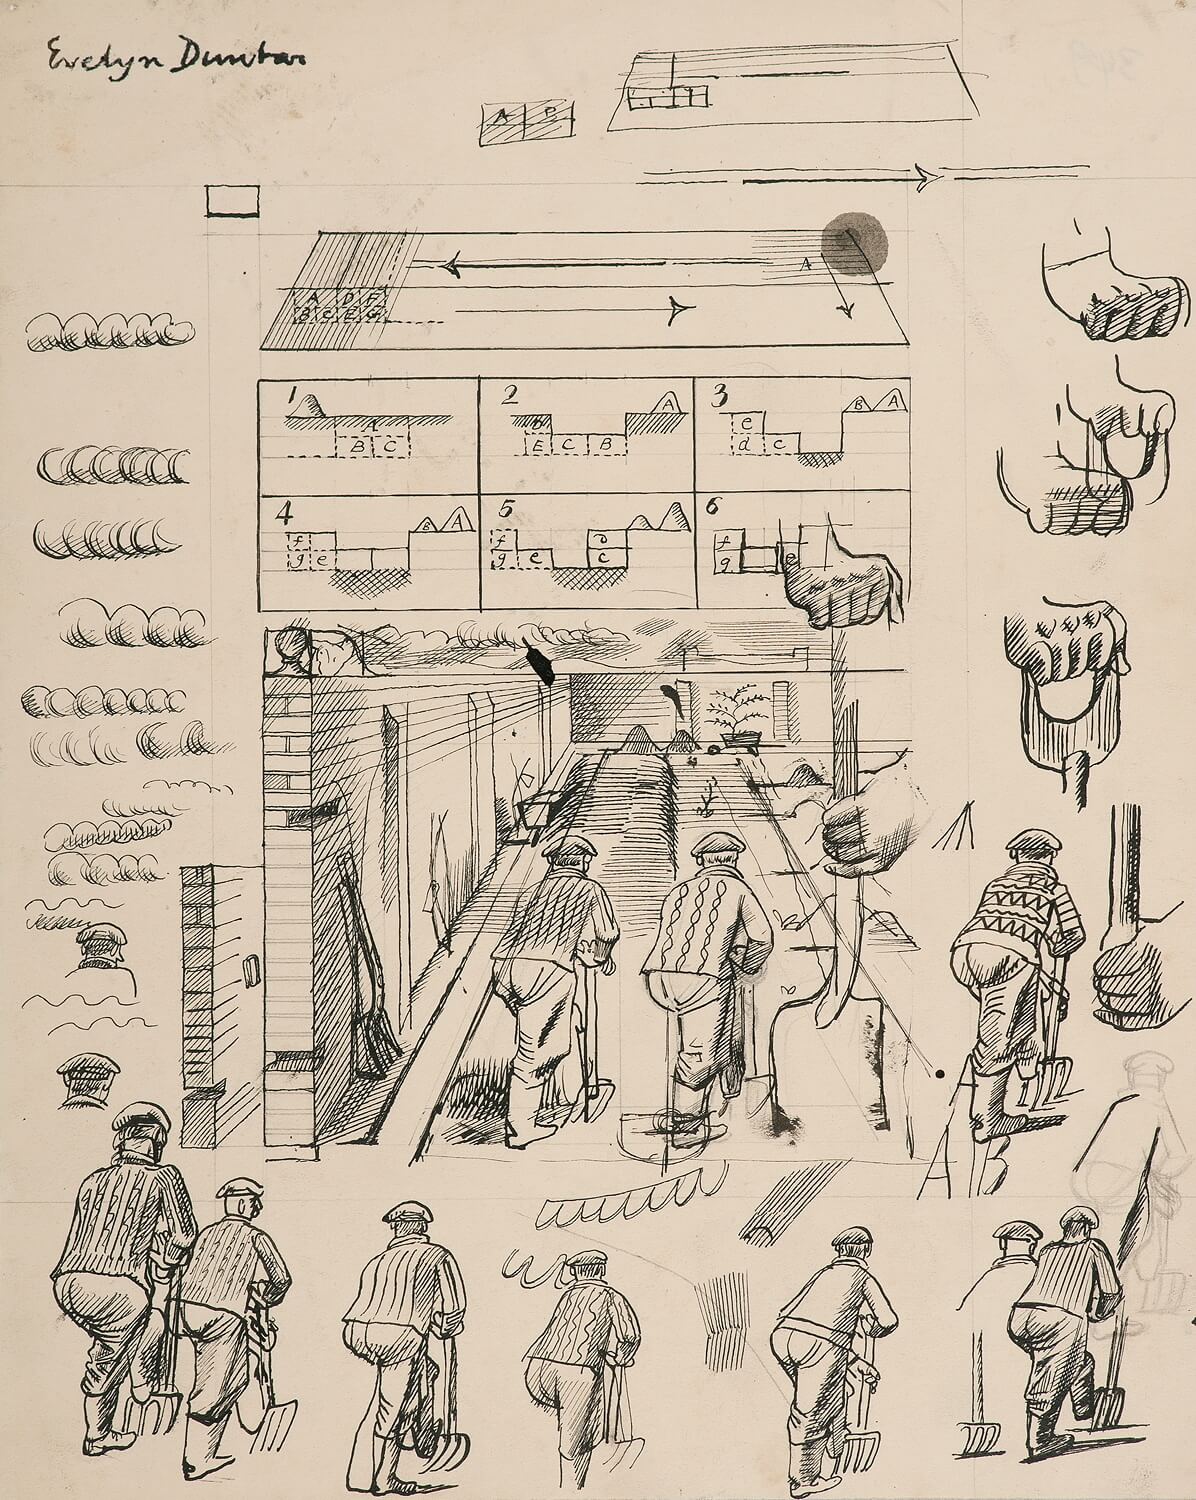 Evelyn Dunbar
A B
A
A D F
B C E G
1 2 3
A A B A
B C D e
E C B d C
4 5 6
B A
f f D f
g e g e c g e
A B